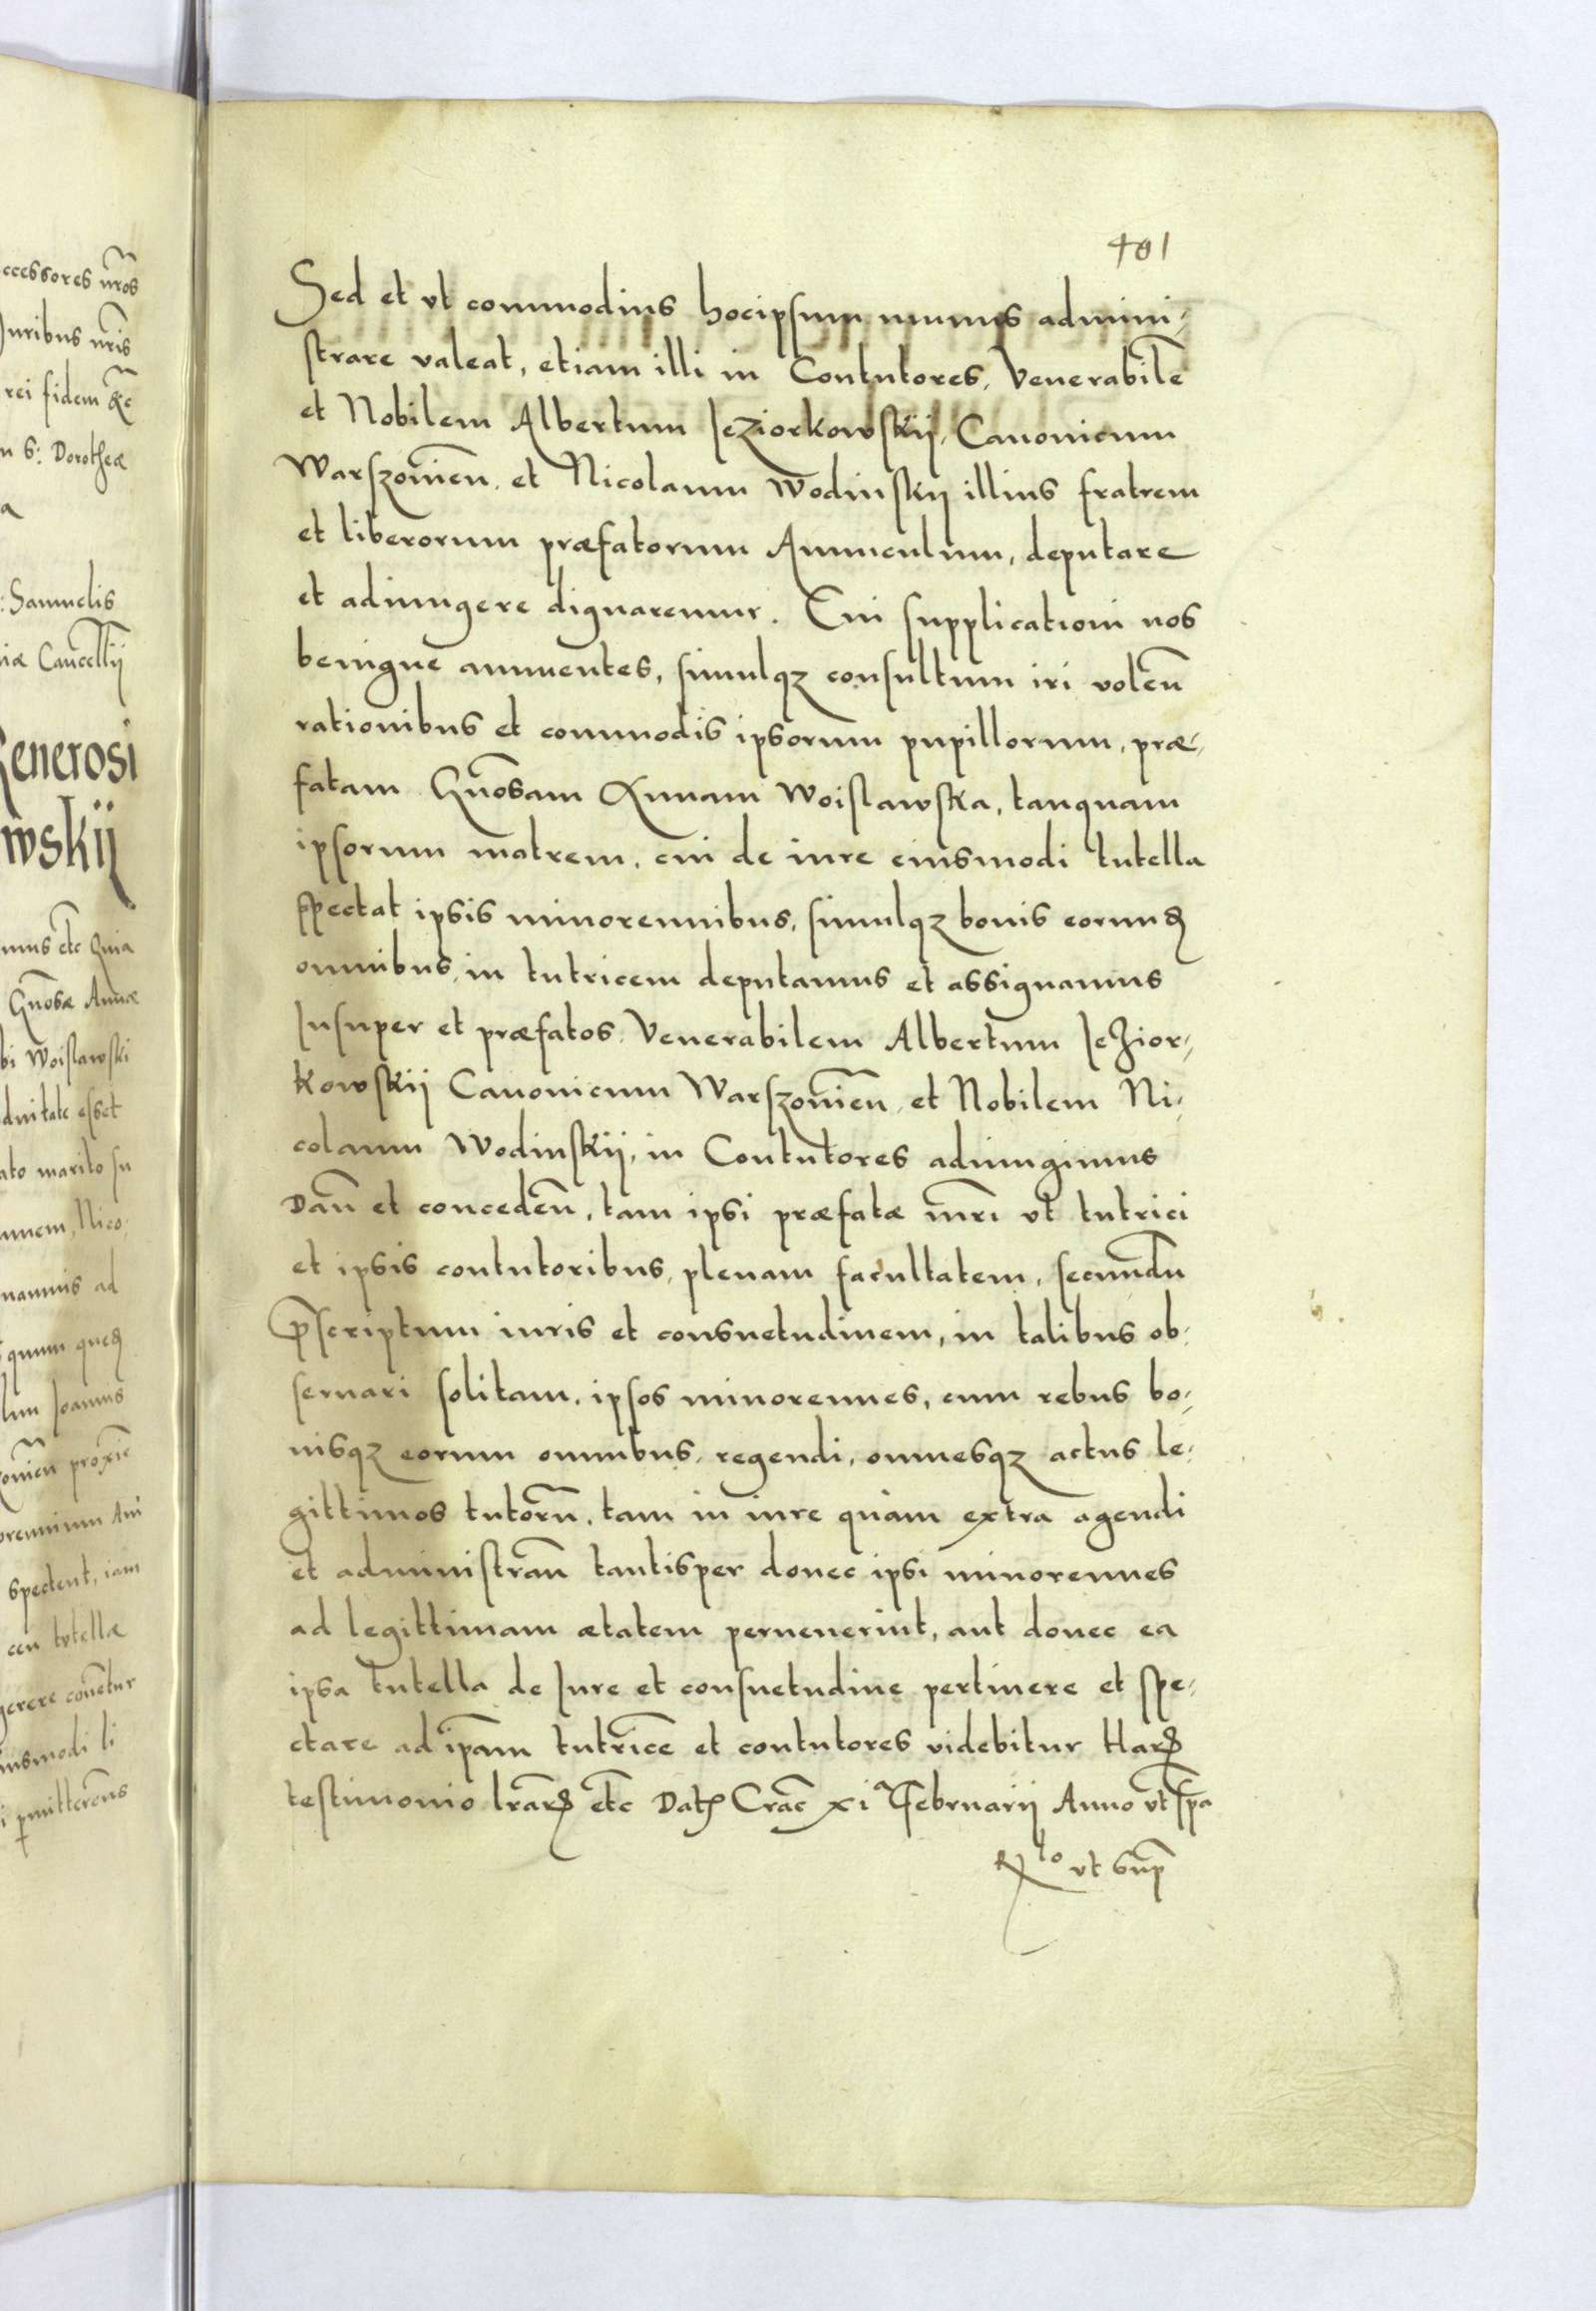 ccessores nr̃os
Iuribus nr̃is
rei fidem &c̃
n S: Dorotheæ
a
: Samuelis
niæ Cancellÿ
Generosi
wskij
mus etc̃ Quia
Gn̄osæ Annæ
bi Woislawski
duitate esset
ato marito su
nnem, Nico-
namus ad
quum
lum Ioannis
proxie
orennium Am
spectent, iam
ceu tvtellæ
gerere
iusmodi li
i pmitterems
401
Sed et vt commodius hocipsum munus admini-
strare valeat, etiam illi in Contutores, Venerabilē
et Nobilem Albertum Ieziorkowskij, Canonicum
Warszouien̄. et Nicolaum Wodinskij illius fratrem
et liberorum præfatorum Auunculum, deputare
et adiungere dignaremur. Cui supplicationi nos
benigne annuentes, simulqz consultum iri volen̄
rationibus et commodis ipsorum pupillorum, præ-
fatam Gn̄osam Annam Woislawska, tanquam
ipsorum matrem, cui de iure eiusmodi tutella
spectat ipsis minorennibus, simulqz bonis eorumꝺ
omnibus, in tutricem deputamus et assignamus
Insuper et præfatos Venerabilem Albertum Iezior-
kowskij Canonicum Warszouien̄, et Nobilem Ni-
colaum Wodinskij, in Contutores adiungimus
Dan̄ et conceden̄, tam ipsi præfatæ mr̃i vt tutrici
et ipsis contutoribus, plenam facultatem, secundū
p̄scriptum iuris et consuetudinem, in talibus ob-
seruari solitam, ipsos minorennes, cum rebus bo-
nisqz eorum omnibus, regendi, omnesqz actus le-
gittimos tutorū, tam in iure quàm extra agendi
et administran̄ tantisper donec ipsi minorennes
ad legittimam ætatem peruenerint, aut donec ea
ipsa tutella de Iure et consuetudine pertinere et spe-
ctare ad ip̄am tutricē et contutores videbitur Harꝝ
testimonio lr̃arꝝ etc̃ Datꝭ Crac̃ xi Februarij Anno vt sp̃a
R̃lo vt sup̄